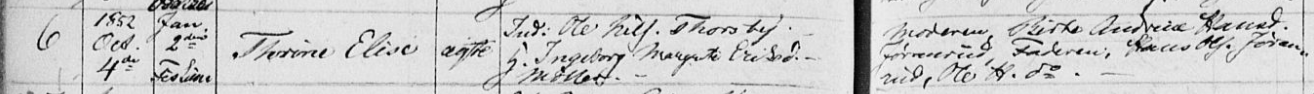 6 1852 Oct. 4de
Jan. 2den
Thorine Elise
ægte
Ind: Ole Nils. Thorsby.
H. Ingeborg Margrete Eriksd.
Møller.
Moderen, Birthe Andrea Hansd.
Faderen, Hans Ols. Jøran-
rud, Ole H. do.